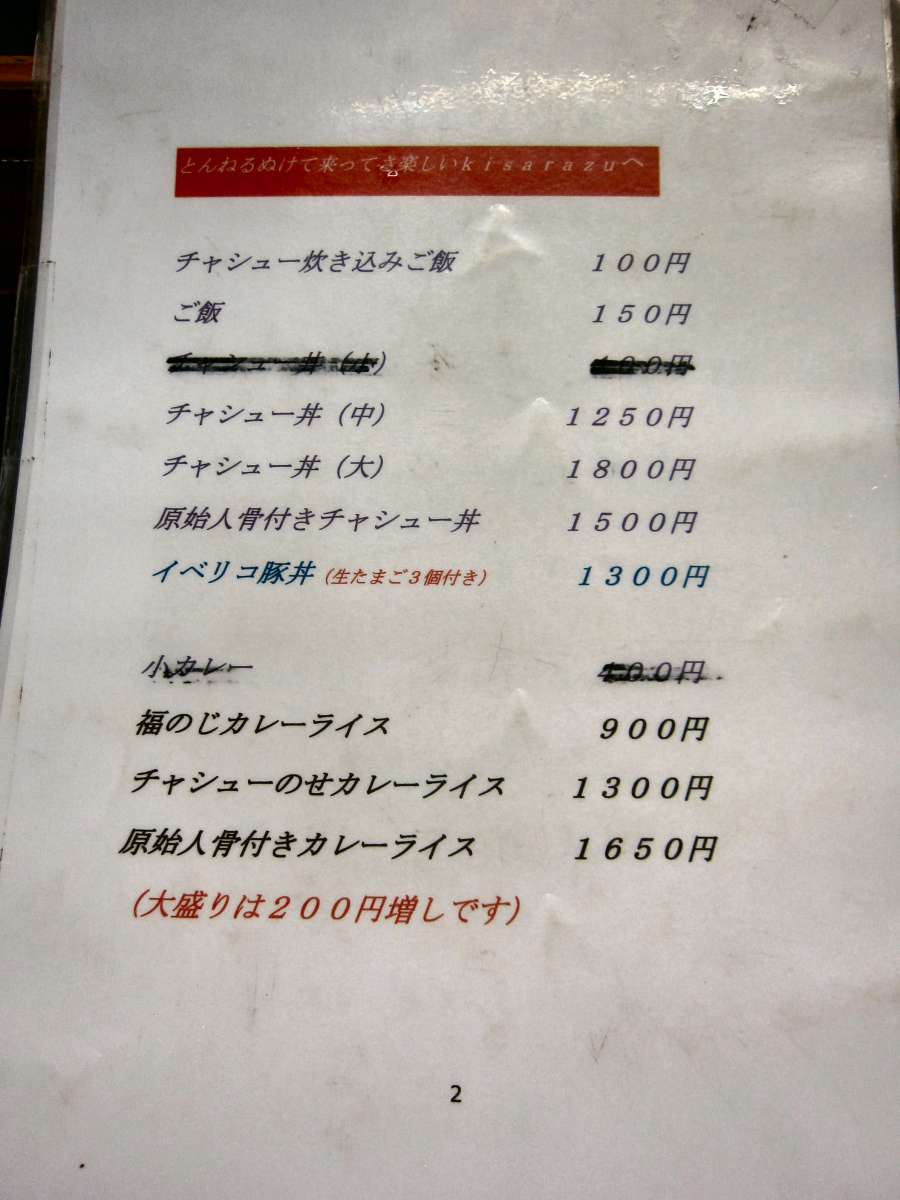 とんねるぬけて来ってさ楽しいｋｉｓａｒａｚｕへ
チャシュー炊き込みご飯 １００円
ご飯 １５０円
チャシュー丼（小） ００円
チャシュー丼（中） １２５０円
チャシュー丼（大） １８００円
原始人骨付きチャシュー丼 １５００円
イベリコ豚丼（生たまご３個付き） １３００円
小カレー ４００円
福のじカレーライス ９００円
チャシューのせカレーライス １３００円
原始人骨付きカレーライス １６５０円
（大盛りは２００円増しです）
2